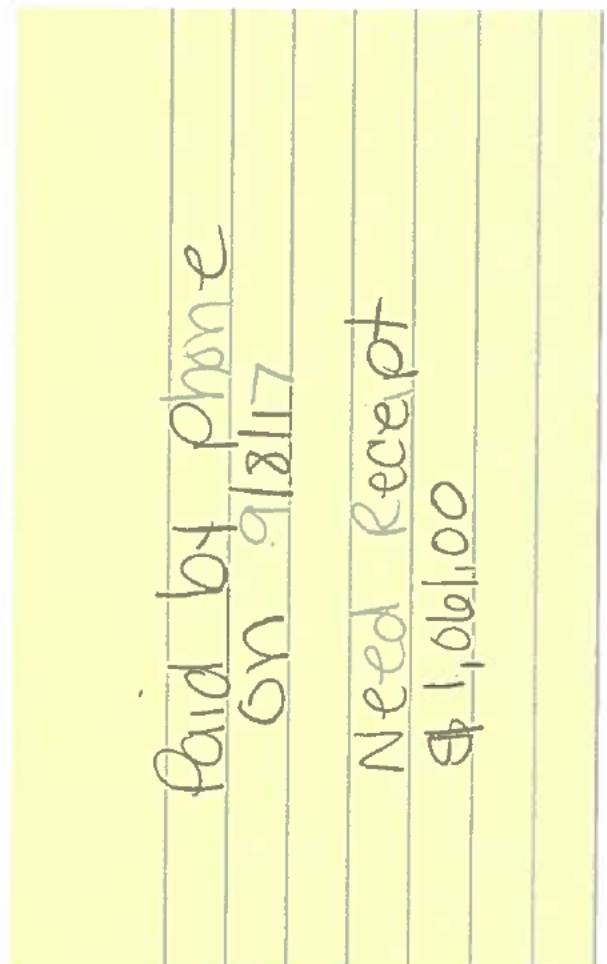 Paid by phone
on 9/8/17
Need Receipt
$1,061.00